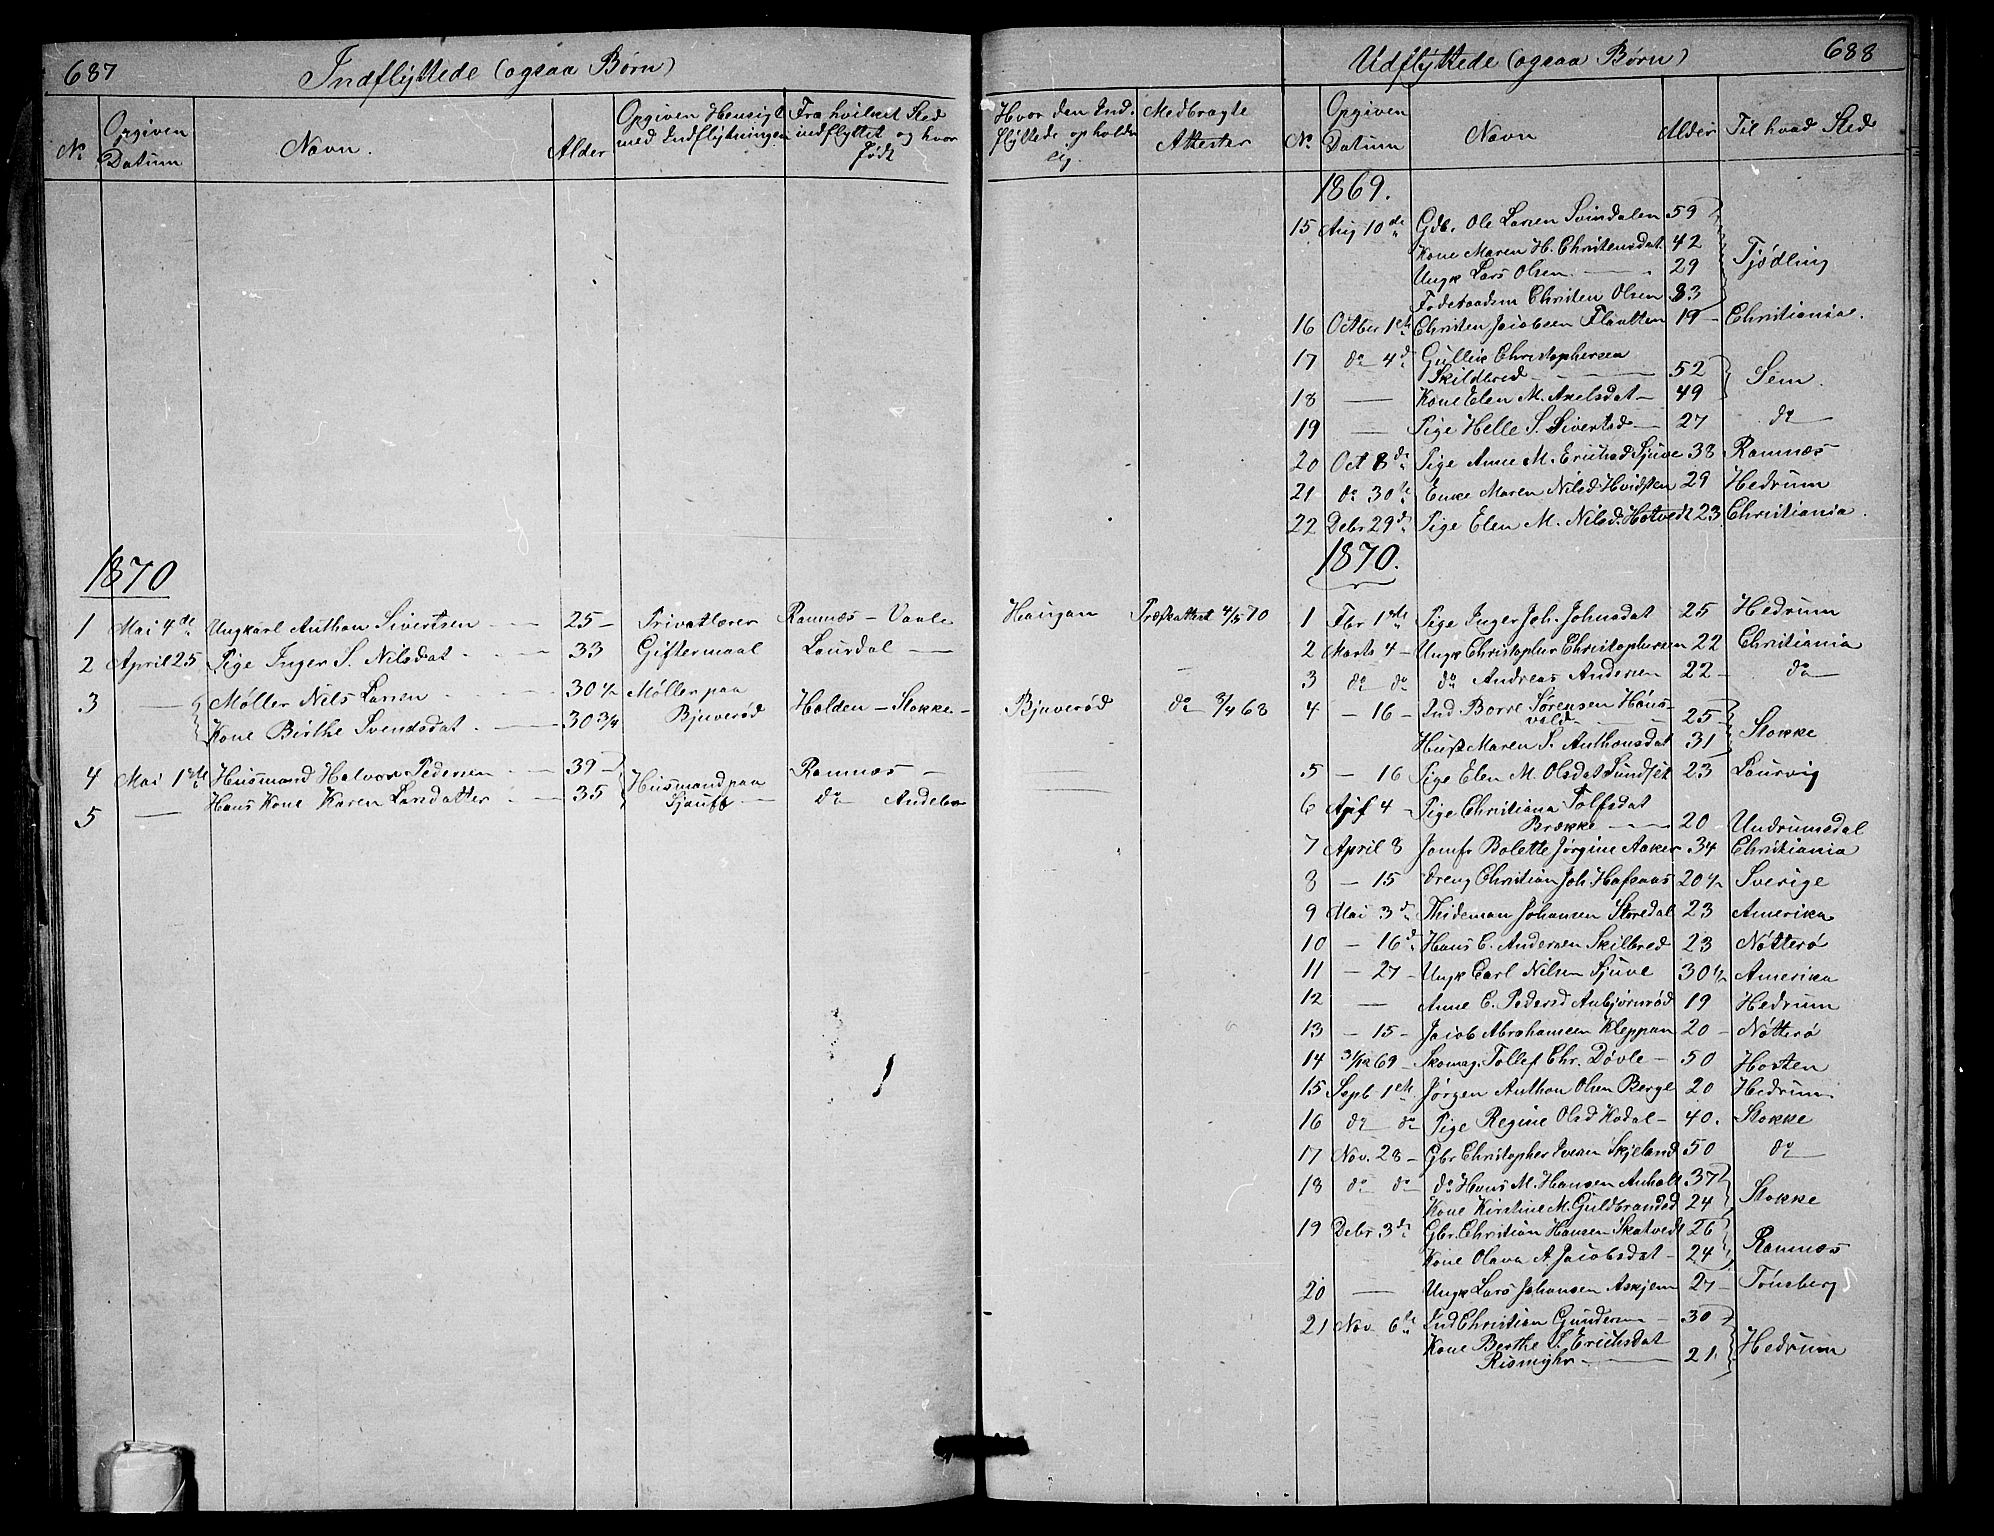 687
Indflyttede (ogsaa Børn)
No
Opgiven Datum
Navn.
Alder
Opgiven Hensigt med Indflytningen
Fra hvilket Sted indflyttet og hvor født
Hvor den Indflyttede opholder sig.
Medbragte Attester
1870
1 Mai 4de Ungkarl Anthon Sivertsen 25 – Privatlærer Ramnæs – Vaale Haugan Præsteattest 4/5 70
2 April 25 Pige Inger S. Nilsdat 33 Giftermaal Laurdal —
3 — Møller Nils Larsen 30 1/2 Møller paa Holden – Stokke – Bjuerød do 3/4 68
Kone Birthe Svendsdat 30 3/4 Bjuerød
4 Mai 1ste Husmand Halvor Pedersen 39 – Husmand paa Ramnæs –
5 — Hans Kone Karen Larsdatter 35 do Andebu
Udflyttede (ogsaa Børn)
688
No
Opgiven Datum
Navn
Alder
Til hvad Sted
1869.
15 Aug 10de Gdb. Ole Larsen Svindalen 59
Kone Maren H. Christensdat. 42 Tjødling
Ungk Lars Olsen 29
Føderaadsm Christen Olsen 83
16 Octber 1ste Christen Jacobsen Flaatten 19 – Christiania.
17 do 4de Gullik Christophersen
Skildbred 52 Sem.
18 — Kone Elen M. Axelsdat – 49
19 — Pige Helle S. Sivertsd 27 do
20 Oct 8de Pige Anne M. Ericksd Sjuve 38 Ramnæs
21 do 30te Enke Maren Nilsd. Hvidsten 29 Hedrum
22 Debr 29de Pige Elen M. Nilsd. Hotvedt 23 Christiania.
1870.
1 Fbr 1ste Pige Inger Joh. Johnsdat 25 Hedrum
2 Marts 4 – Ungk Christopher Christophersen 22 Christiania
3 do do do Andreas Andersen 22 – do
4 – 16 – Ind Borre Sørensen Haus-
vold 25 Stokke
Hust Maren S. Anthonsdat 31
5 – 16 Pige Elen M. Olsdat Sundset 23 Laurvig
6 4 – Pige Christiana Tolfsdat
Brække 20 Undrumsdal
7 April 8 Jomfr Bolette Jørgine Aaker 34 Christiania
8 – 15 Dreng Christian Joh Hafsaas 20 1/2 Sverige
9 Mai 3de Thideman Johansen Storedal 23 Amerika
10 – 16de Hans C. Andersen Skilbred 23 Nøtterø
11 – 27 – Ungk Carl Nilsen Sjuve 30 1/2 Amerika
12 — Anne C. Pedersd Anbjørnrød 19 Hedrum
13 – 15 – Jacob Abrahamsen Kleppan 20 – Nøtterø
14 31/12 69 – Skomag. Tollef Chr. Døvle – 50 Horten
15 Septb 1ste Jørgen Anthon Olsen Berge 20 Hedrum
16 do do Pige Regine Olsd Kodal – 40. Stokke
17 Nov. 28 – Gbr Christopher Iversen Skjeland 50 do
18 do do do Hans M. Hansen Anholt 37 Stokke
Kone Kirstine M. Guldbrandsd 24
19 Debr 3de Gbr. Christian Hansen Skatvedt 26 Ramnæs
Kone Olava A. Jacobsdat – 24
20 — Ungk Lars Johansen Askjem 27 – Tønsberg
21 Nov. 6te Ind Christian Gundersen 30 Hedrum
Kone Berthe S. Ericksdat
21